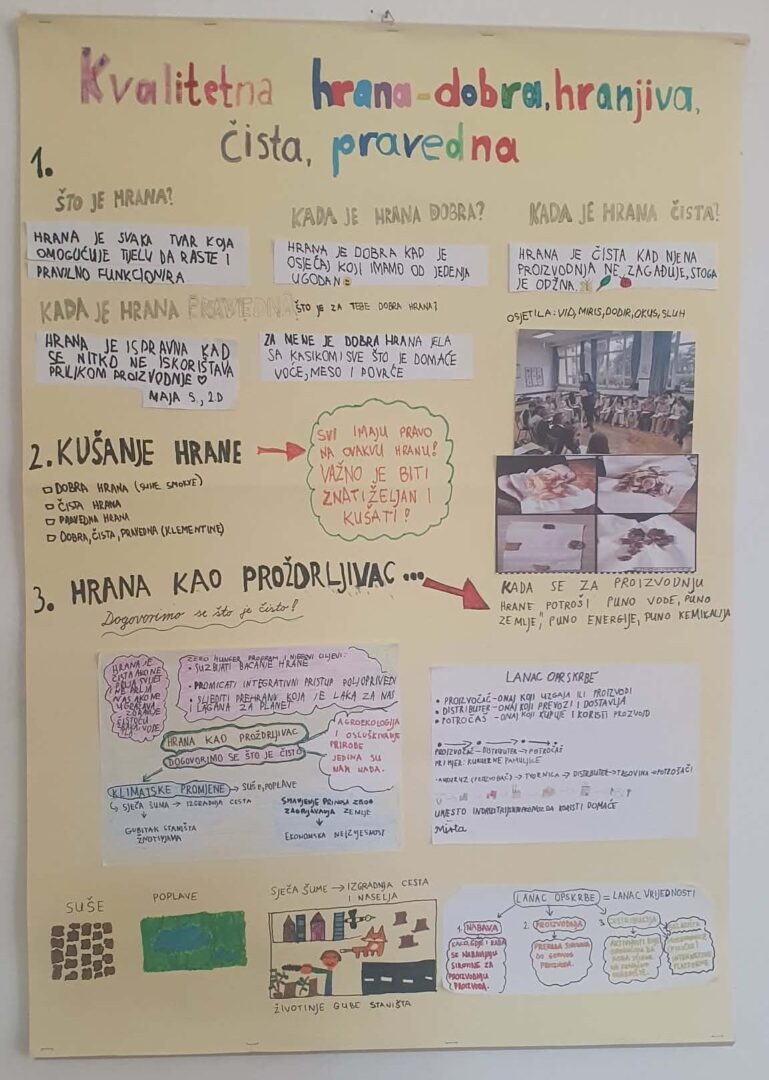 Kvalitetna hrana-dobra, hranjiva,
čista, pravedna
1.
ŠTO JE HRANA?
HRANA JE SVAKA TVAR KOJA
OMOGUĆUJE TIJELU DA RASTE I
PRAVILNO FUNKCIONIRA
KADA JE HRANA DOBRA?
HRANA JE DOBRA KAD JE
OSJEĆAJ KOJI IMAMO OD JEDENJA
UGODAN
KADA JE HRANA ČISTA?
HRANA JE ČISTA KAD NJENA
PROIZVODNJA NE ZAGAĐUJE, STOGA
JE ODŽIVA.
KADA JE HRANA PRAVEDNA
HRANA JE ISPRAVNA KAD
SE NITKO NE ISKORIŠTAVA
PRILIKOM PROIZVODNJE ♡
MAJA S., 2.D
ŠTO JE ZA TEBE DOBRA HRANA?
ZA MENE JE DOBRA HRANA JELA
SA KASIKOM I SVE ŠTO JE DOMAĆE
VOĆE, MESO I POVRĆE
OSJETILA: VID, MIRIS, DODIR, OKUS, SLUH
2. KUŠANJE HRANE
DOBRA HRANA (SUHE SMOKVE)
ČISTA HRANA
PRAVEDNA HRANA
DOBRA, ČISTA, PRAVEDNA (KLEMENTINE)
SVI IMAJU PRAVO
NA OVAKVU HRANU!
VAŽNO JE BITI
ZNATIŽELJAN I
KUŠATI!
3. HRANA KAO PROŽDRLJIVAC...
Dogovorimo se što je čisto!
KADA SE ZA PROIZVODNJU
HRANE POTROŠI PUNO VODE, PUNO
ZEMLJE, PUNO ENERGIJE, PUNO KEMIKALIJA
HRANA JE
ČISTA AKO NE
PRLJA SVIJET
NE PRLJA
NAS AKO NE
UGROŽAVA
ZDRAVLJE
ČISTOĆU
ZRAKA, VODE
ZERO HUNGER PROGRAM I NJEGOVI CILJEVI:
• SUZBIJATI BACANJE HRANE
• PROMICATI INTEGRATIVNI PRISTUP POLJOPRIVREDI
• SLIJEDITI PREHRANU KOJA JE LAKA ZA NAS
LAGANA ZA PLANET
HRANA KAO PROŽDRLJIVAC
DOGOVORIMO SE ŠTO JE ČISTO
AGROEKOLOGIJA
I OSLUŠKIVANJE
PRIRODE
JEDINA SU
NAM NADA.
KLIMATSKE PROMJENE → SUŠE, POPLAVE
↳ SJEČA ŠUMA → IZGRADNJA CESTA
GUBITAK STANIŠTA
ŽIVOTINJAMA
SMANJENJE PRINOSA ZBOG
ZAGRIJAVANJA ZEMLJE
EKONOMSKA NEIZVJESNOST
LANAC OPSKRBE
• PROIZVOĐAČ - ONAJ KOJI UZGAJA ILI PROIZVODI
• DISTRIBUTER - ONAJ KOJI PREVOZI I DOSTAVLJA
• POTROČAS - ONAJ KOJI KUPUJE I KORISTI PROIZVOD
PROIZVOĐAČ - DISTRIBUTER → POTROČAS
PRIMJER: KUKURUZNE
KUKURUZ (PROIZVOĐAČ) → TVORNICA → DISTRIBUTER → TRGOVINA → POTROŠAČI
UMJESTO KORISTI DOMAĆE
SUŠE
POPLAVE
SJEČA ŠUME → IZGRADNJA CESTA
I NASELJA
ŽIVOTINJE GUBE STANIŠTA
LANAC OPSKRBE = LANAC VRIJEDNOSTI
1. NABAVA
KAKO, GDJE I KADA
SE NABAVLJAJU
SIROVINE ZA
PROIZVODNJU
PROIZVODA.
2. PROIZVODNJA
PRERADA SIROVINA
DO GOTOVOG
PROIZVODA.
3. DISTRIBUCIJA
INTERNETSKE
PLATFORME